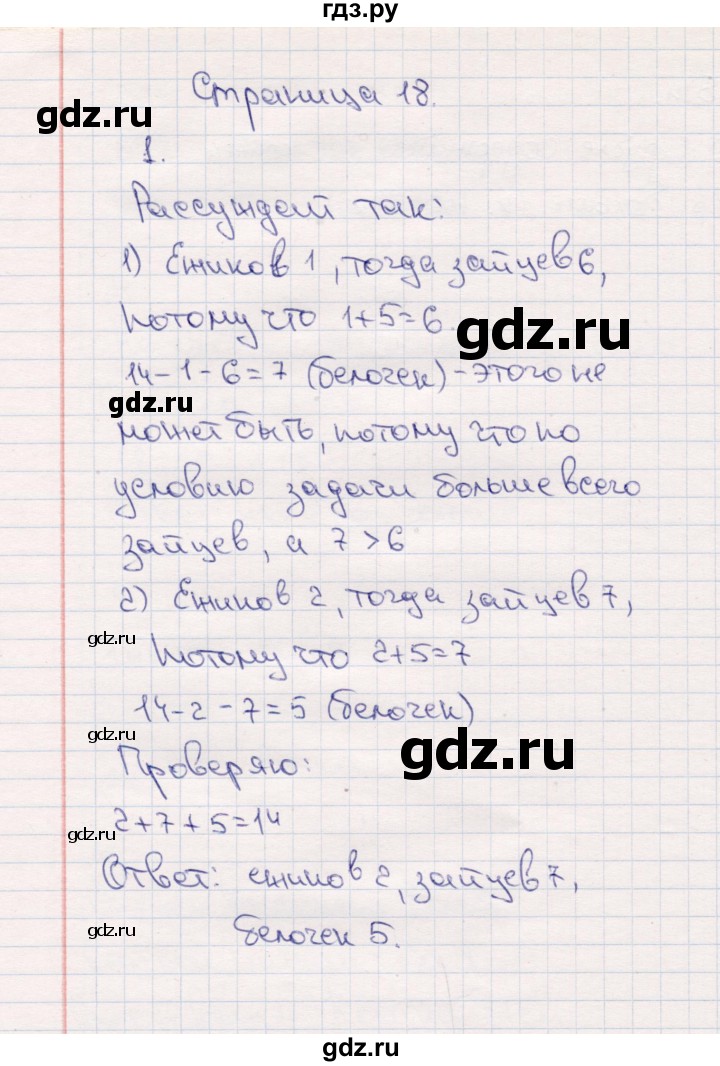 гдз.ру
Страница 18.
gdz.ru
1.
Рассуждаем так:
1) Ежиков 1, тогда зайцев 6,
потому что 1+5=6
gdz.ru
14-1-6=7 (белочек) - этого не
gdz.ru
может быть, потому что по
условию задачи больше всего
зайцев, а 7 > 6
2) Ежиков 2, тогда зайцев 7,
gdz.ru
потому что 2+5=7
14-2-7=5 (белочек)
gdz.ru
gdz.ru
Проверяю:
2+7+5=14
gdz.ru
Ответ: ежиков 2, зайцев 7,
gdz.ru
белочек 5.
gdz.ru